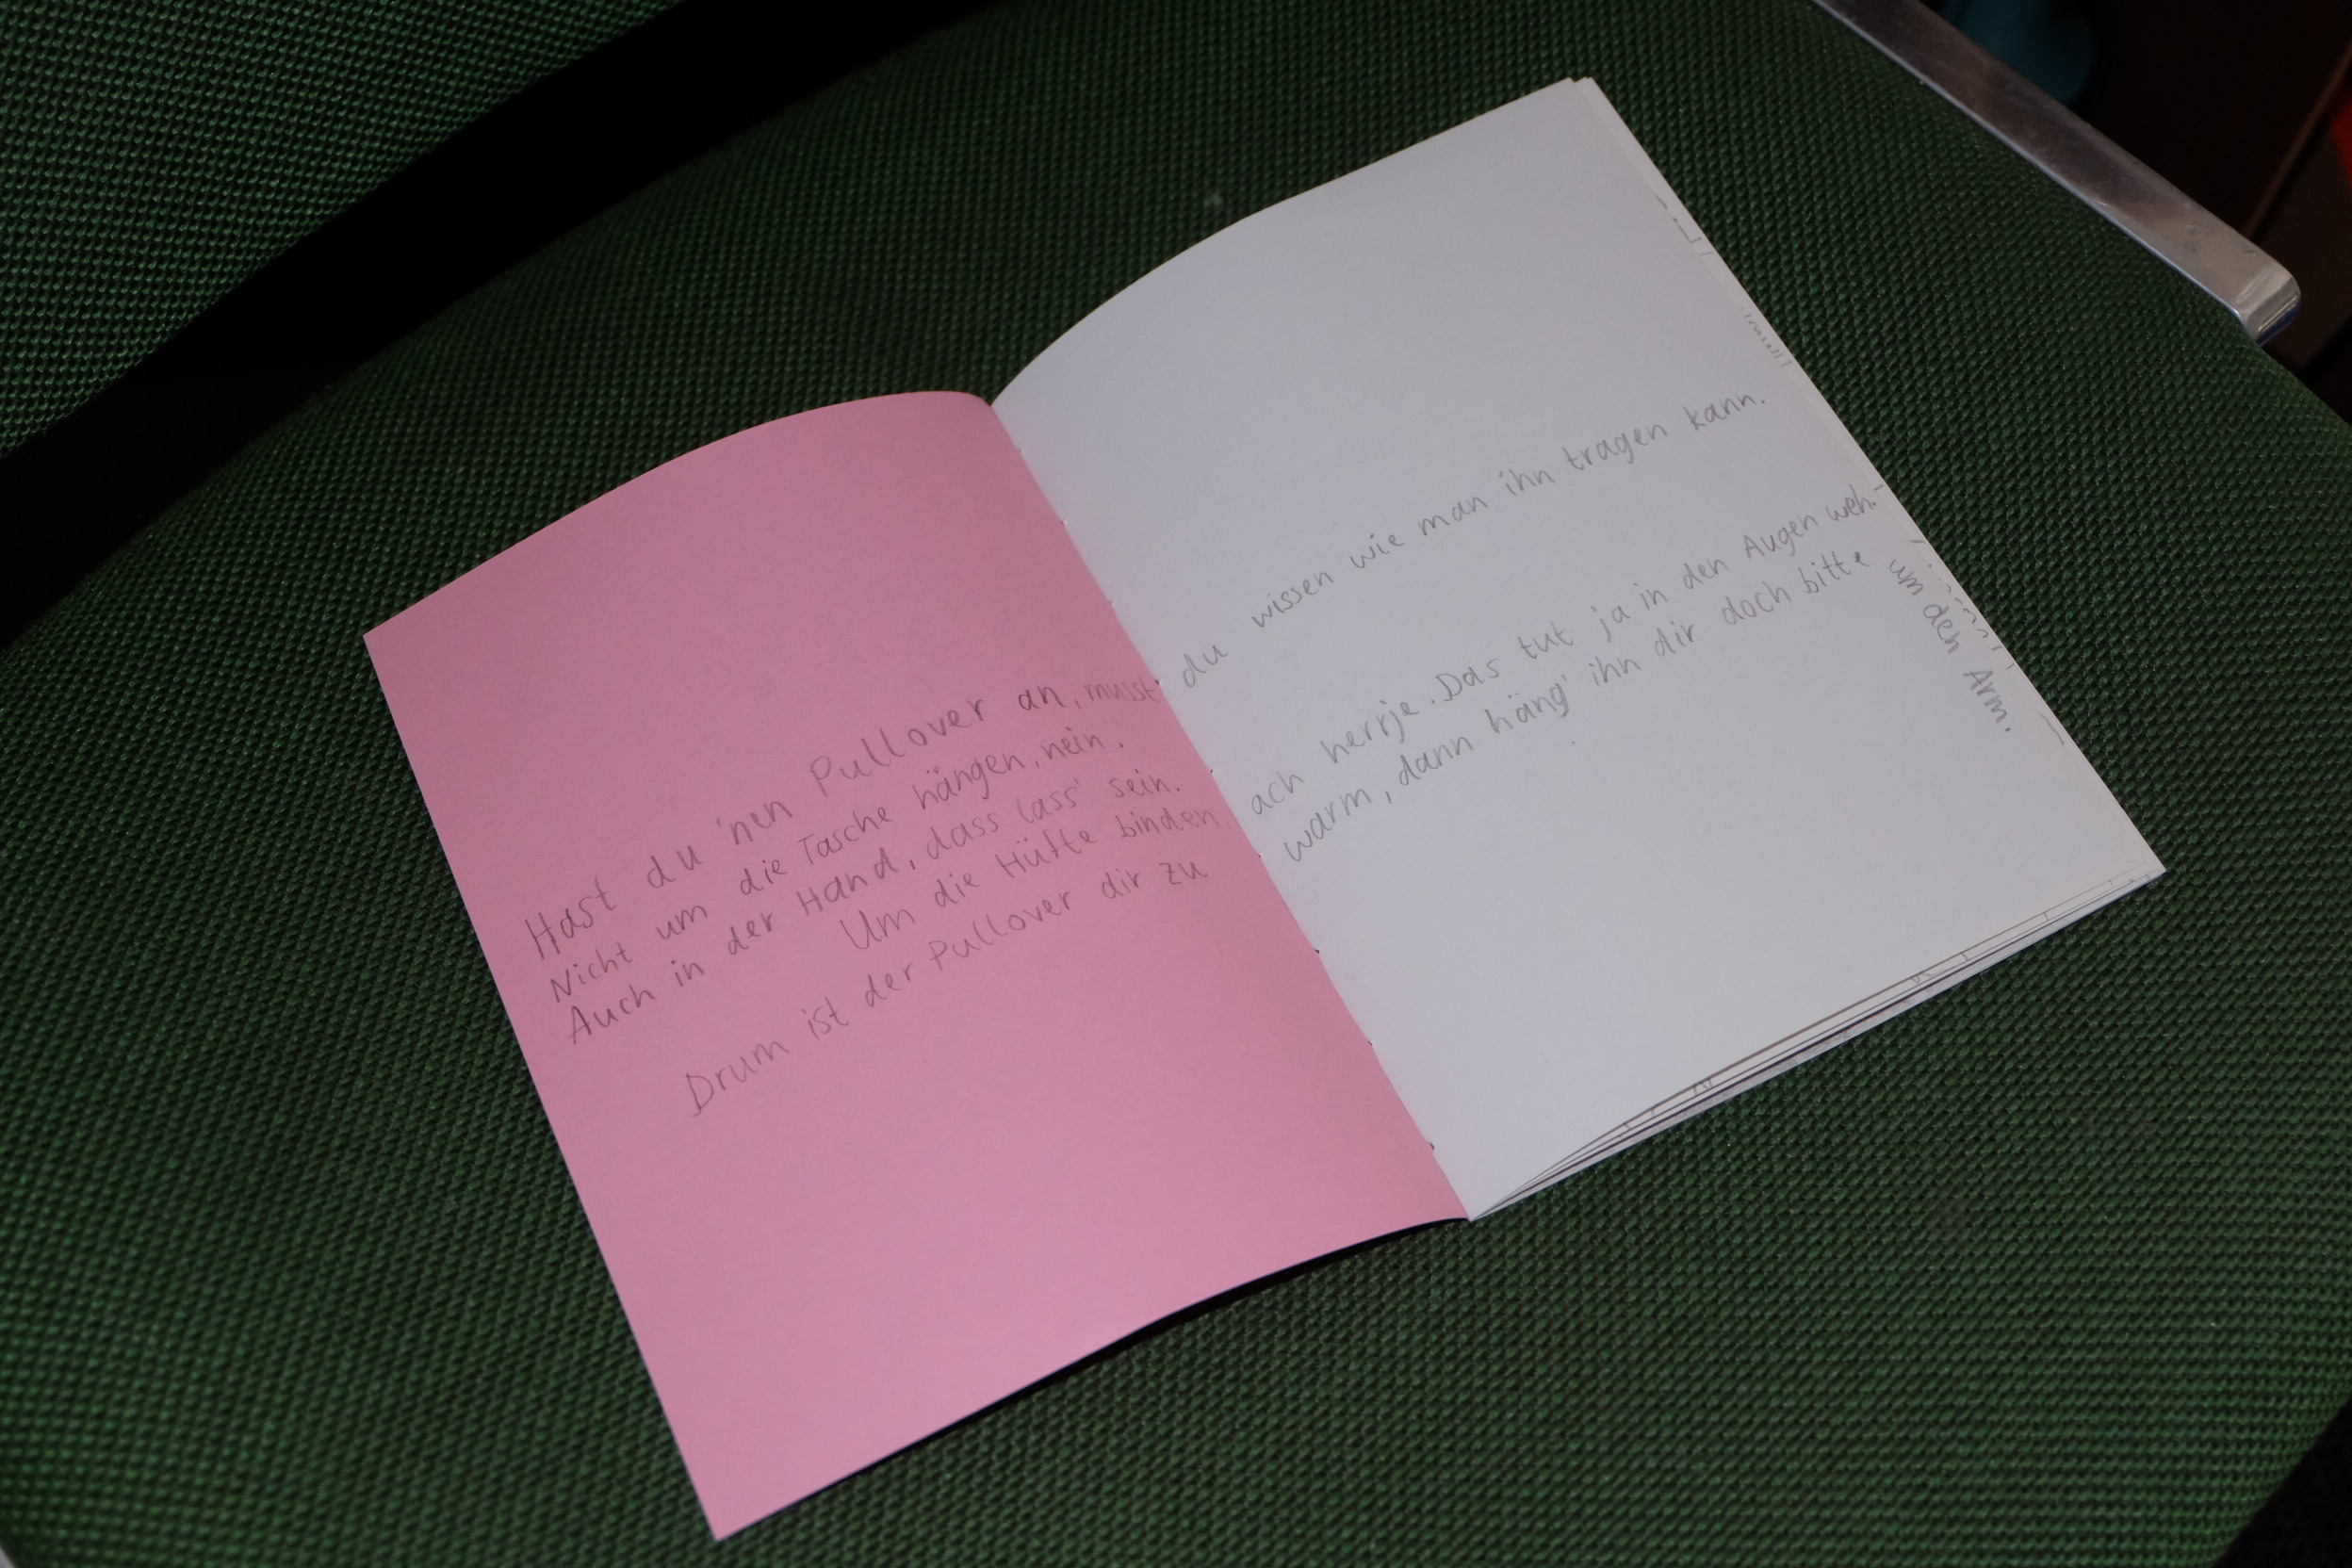 Hast du 'nen Pullover an, musst du wissen wie man ihn tragen kann.
Nicht um die Tasche hängen, nein.
Auch in der Hand, dass lass' sein.
Um die Hüfte binden, ach herrje. Das tut ja in den Augen weh.
Drum ist der Pullover dir zu warm, dann häng' ihn dir doch bitte
um den Arm.